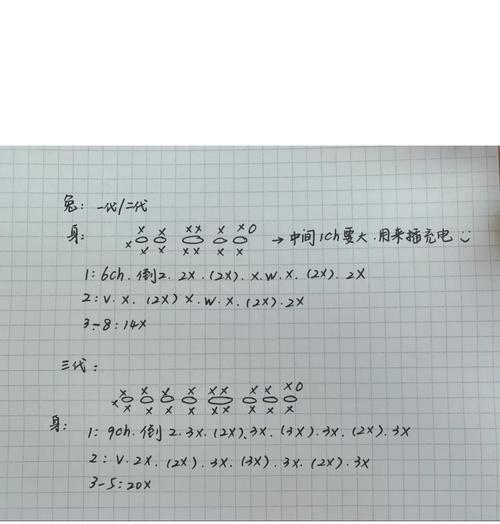 兔：一代/二代
身：
x x xx x xO
x
→中间1ch要大.用来插充电
x x xx x x
1：6ch.倒2.2X.(2X).X.W.X.(2X).2X
2：V.X.(2X)X.W.X.(2X).2X
3-8：14X
三代：
x x x xx x x xO
x
x x x xx x x x
身：
1：9ch.倒2.3X.(2X).3X.(3X).3X.(2X).3X
2：V.2X.(2X).3X.(3X).3X.(2X).3X
3-5：20X